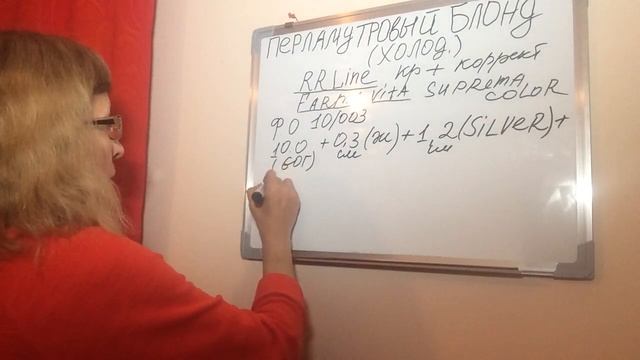 ПЕРЛАМУТРОВЫЙ БЛОНД
(ХОЛОД.)
RR Line кр + коррект
FARMAVITA SUPREMA COLOR
ФО 10/003
10.0 + 0,3 (ж) + 1,2 (SILVER) +
(60г) см см